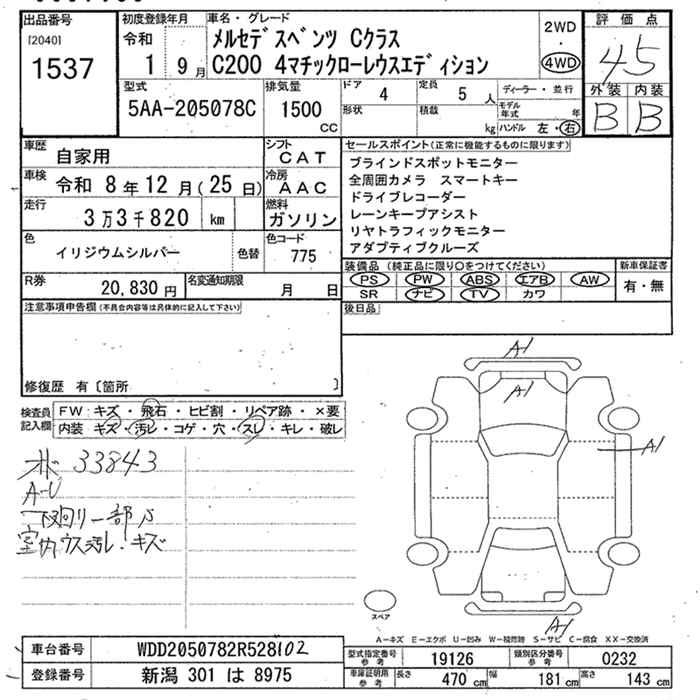 出品番号
[2040]
1537
初度登録年月
令和
1 9月
車名・グレード
メルセデスベンツ Cクラス
C200 4マチックローレウスエディション
2WD
・
4WD
評価点
4.5
外装 内装
B B
型式
5AA-205078C
排気量
1500
cc
ドア
4
定員
5 人
形状
積載
kg
ディーラー・並行
モデル年式 年
ハンドル 左・右
車歴
自家用
シフト
CAT
車検
令和 8年12月(25日)
冷房
AAC
走行
3万3千820 km
燃料
ガソリン
色
イリジウムシルバー
色替
色コード
775
R券
20,830円
名変通知期限
月 日
セールスポイント(正常に機能するものに限ります)
ブラインドスポットモニター
全周囲カメラ スマートキー
ドライブレコーダー
レーンキープアシスト
リヤトラフィックモニター
アダプティブクルーズ
装備品(純正品に限り○をつけてください)
PS PW ABS エアB AW
SR ナビ TV カワ
新車保証書
有・無
注意事項申告欄(不具合内容等は具体的に記入して下さい)
後日品
修復歴 有〔箇所 〕
検査員
記入欄
FW キズ・飛石・ヒビ割・リペア跡・×要
内装 キズ・汚レ・コゲ・穴・スレ・キレ・破レ
33843
A-U
下回り一部S
室内ウス汚レ・キズ
A1
A1
A1
A1
スペア
A-キズ E-エクボ U-凹み W-補修跡 S-サビ C-腐食 XX-交換済
車台番号
WDD2050782R528102
登録番号
新潟 301 は 8975
型式指定番号
参考
19126
類別区分番号
参考
0232
車庫証明用
参考
長さ
470 cm
幅
181 cm
高さ
143 cm